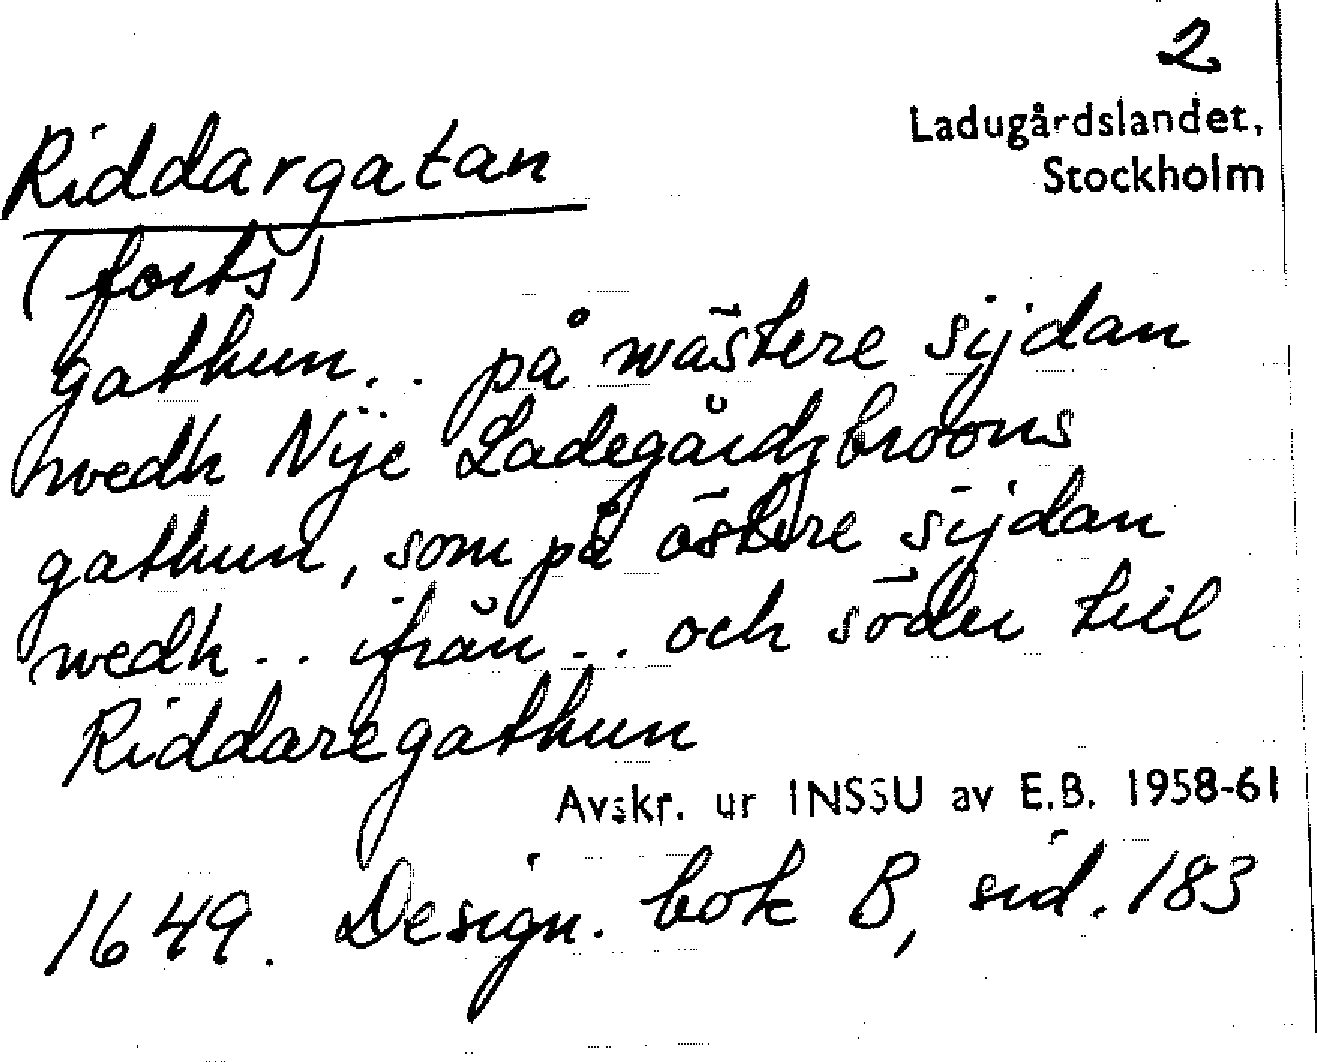 2
Ladugårdslandet,
Stockholm
Riddargatan
(forts)
gathun.. på wästere sijdan
wedh Nÿe Ladegårdzbroons
gathun, som på östere sijdan
wedh.. ifrån.. och söder till
Riddaregathun
Avskr. ur INSSU av E.B. 1958-61
1649. Design. bok B, sid. 183